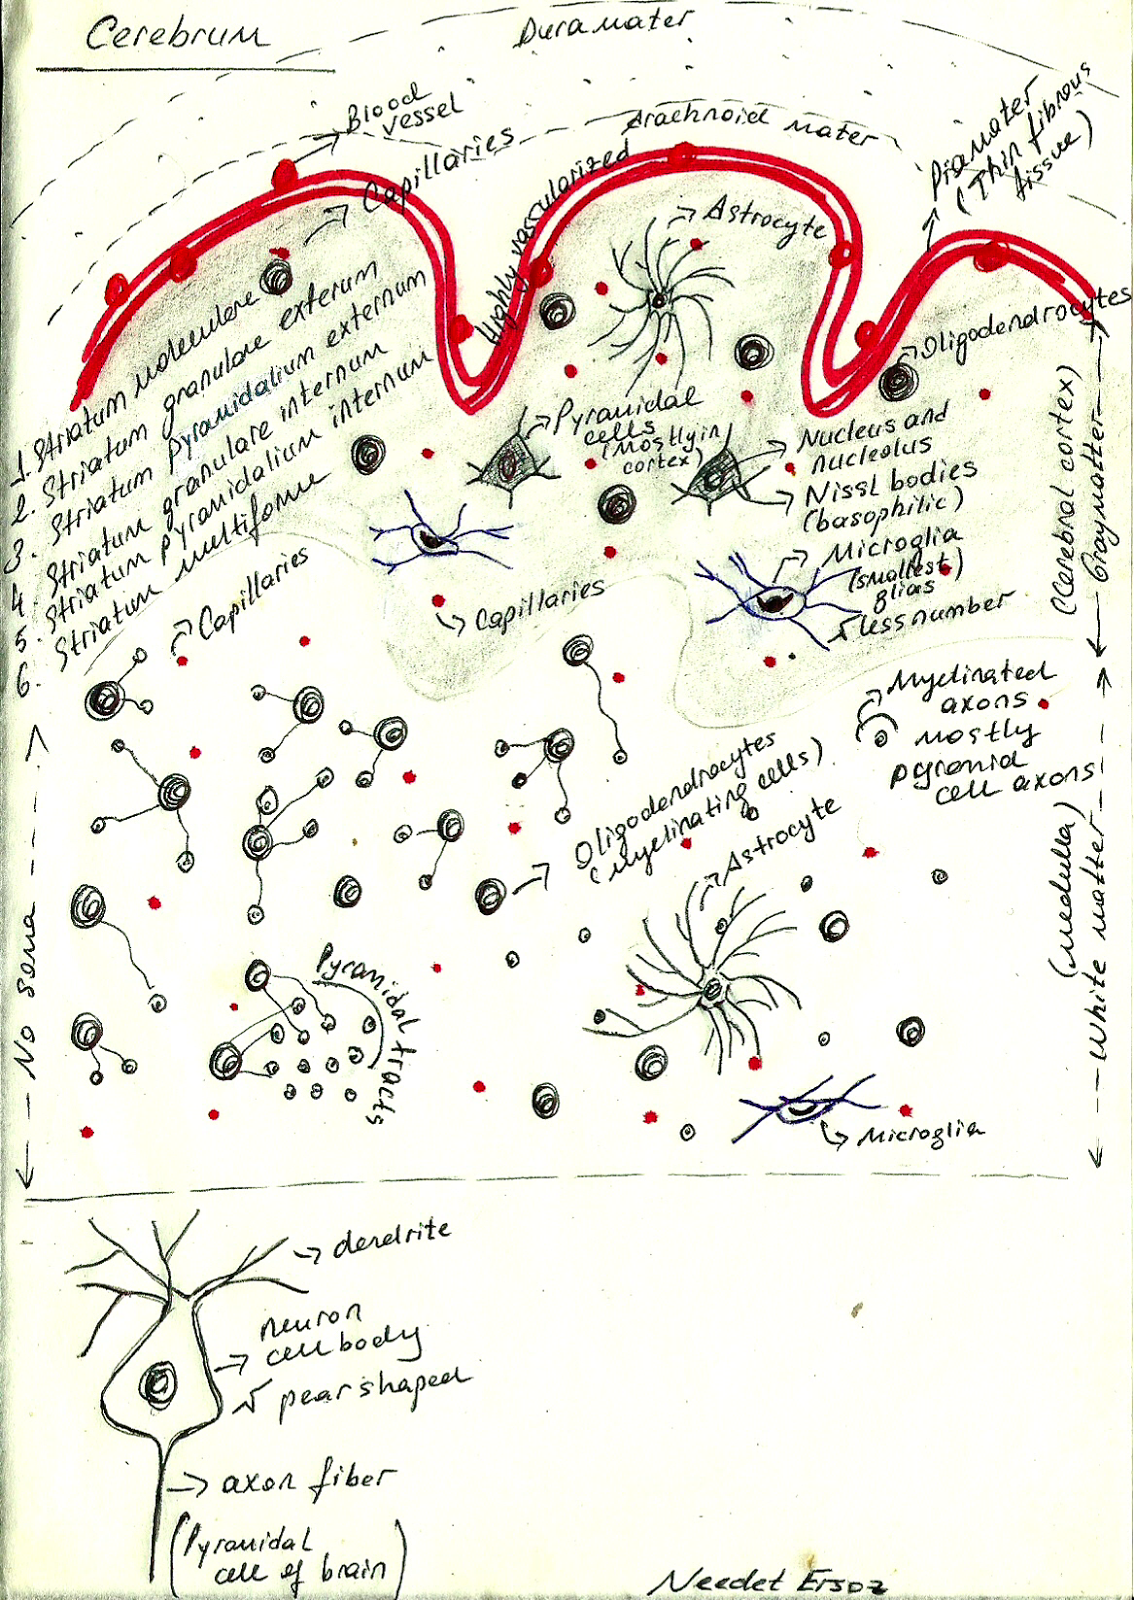 Cerebrum
Duramater
Blood
vessel
Capillaries
Arachnoid mater
Piamater
(Thin fibrous
tissue)
Highly vascularized
Astrocyte
Oligodendrocytes
1. Striatum moleculare
2. Striatum granulare externum
3. Striatum Pyramidalium externum
4. Striatum granulare internum
5. Striatum pyramidalium internum
6. Striatum multiforme
Pyramidal
cells
(mostly in
cortex)
Nucleus and
nucleolus
Nissl bodies
(basophilic)
Microglia
(smallest)
glias
less number
(Cerebral cortex)
Graymatter
Capillaries
Capillaries
Myelinated
axons
mostly
pyramid
cell axons
Oligodendrocytes
(Myelinating cells)
Astrocyte
No soma
(Medulla)
White matter
Pyramidal tracts
Microglia
dendrite
neuron
cell body
pear shaped
axon fiber
(Pyramidal
cell of brain)
Necdet Ersoz